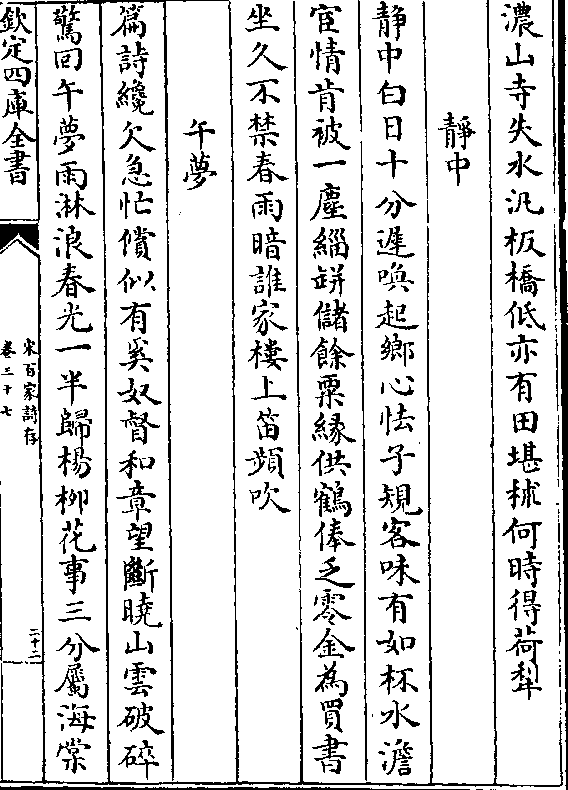 濃山寺失水汎板橋低亦有田堪秫何時得荷犁
靜中
靜中白日十分遲喚起鄉心怯子規客味有如杯水澹
宦情肯被一塵緇缾儲餘粟緣供鶴俸乏零金為買書
坐久不禁春雨暗誰家樓上笛頻吹
午夢
驚回午夢雨淋浪春光一半歸楊柳花事三分屬海棠
篇詩纔欠急忙償似有奚奴督和章望斷曉山雲破碎
欽定四庫全書
宋百家詩存
卷三十七
三十二